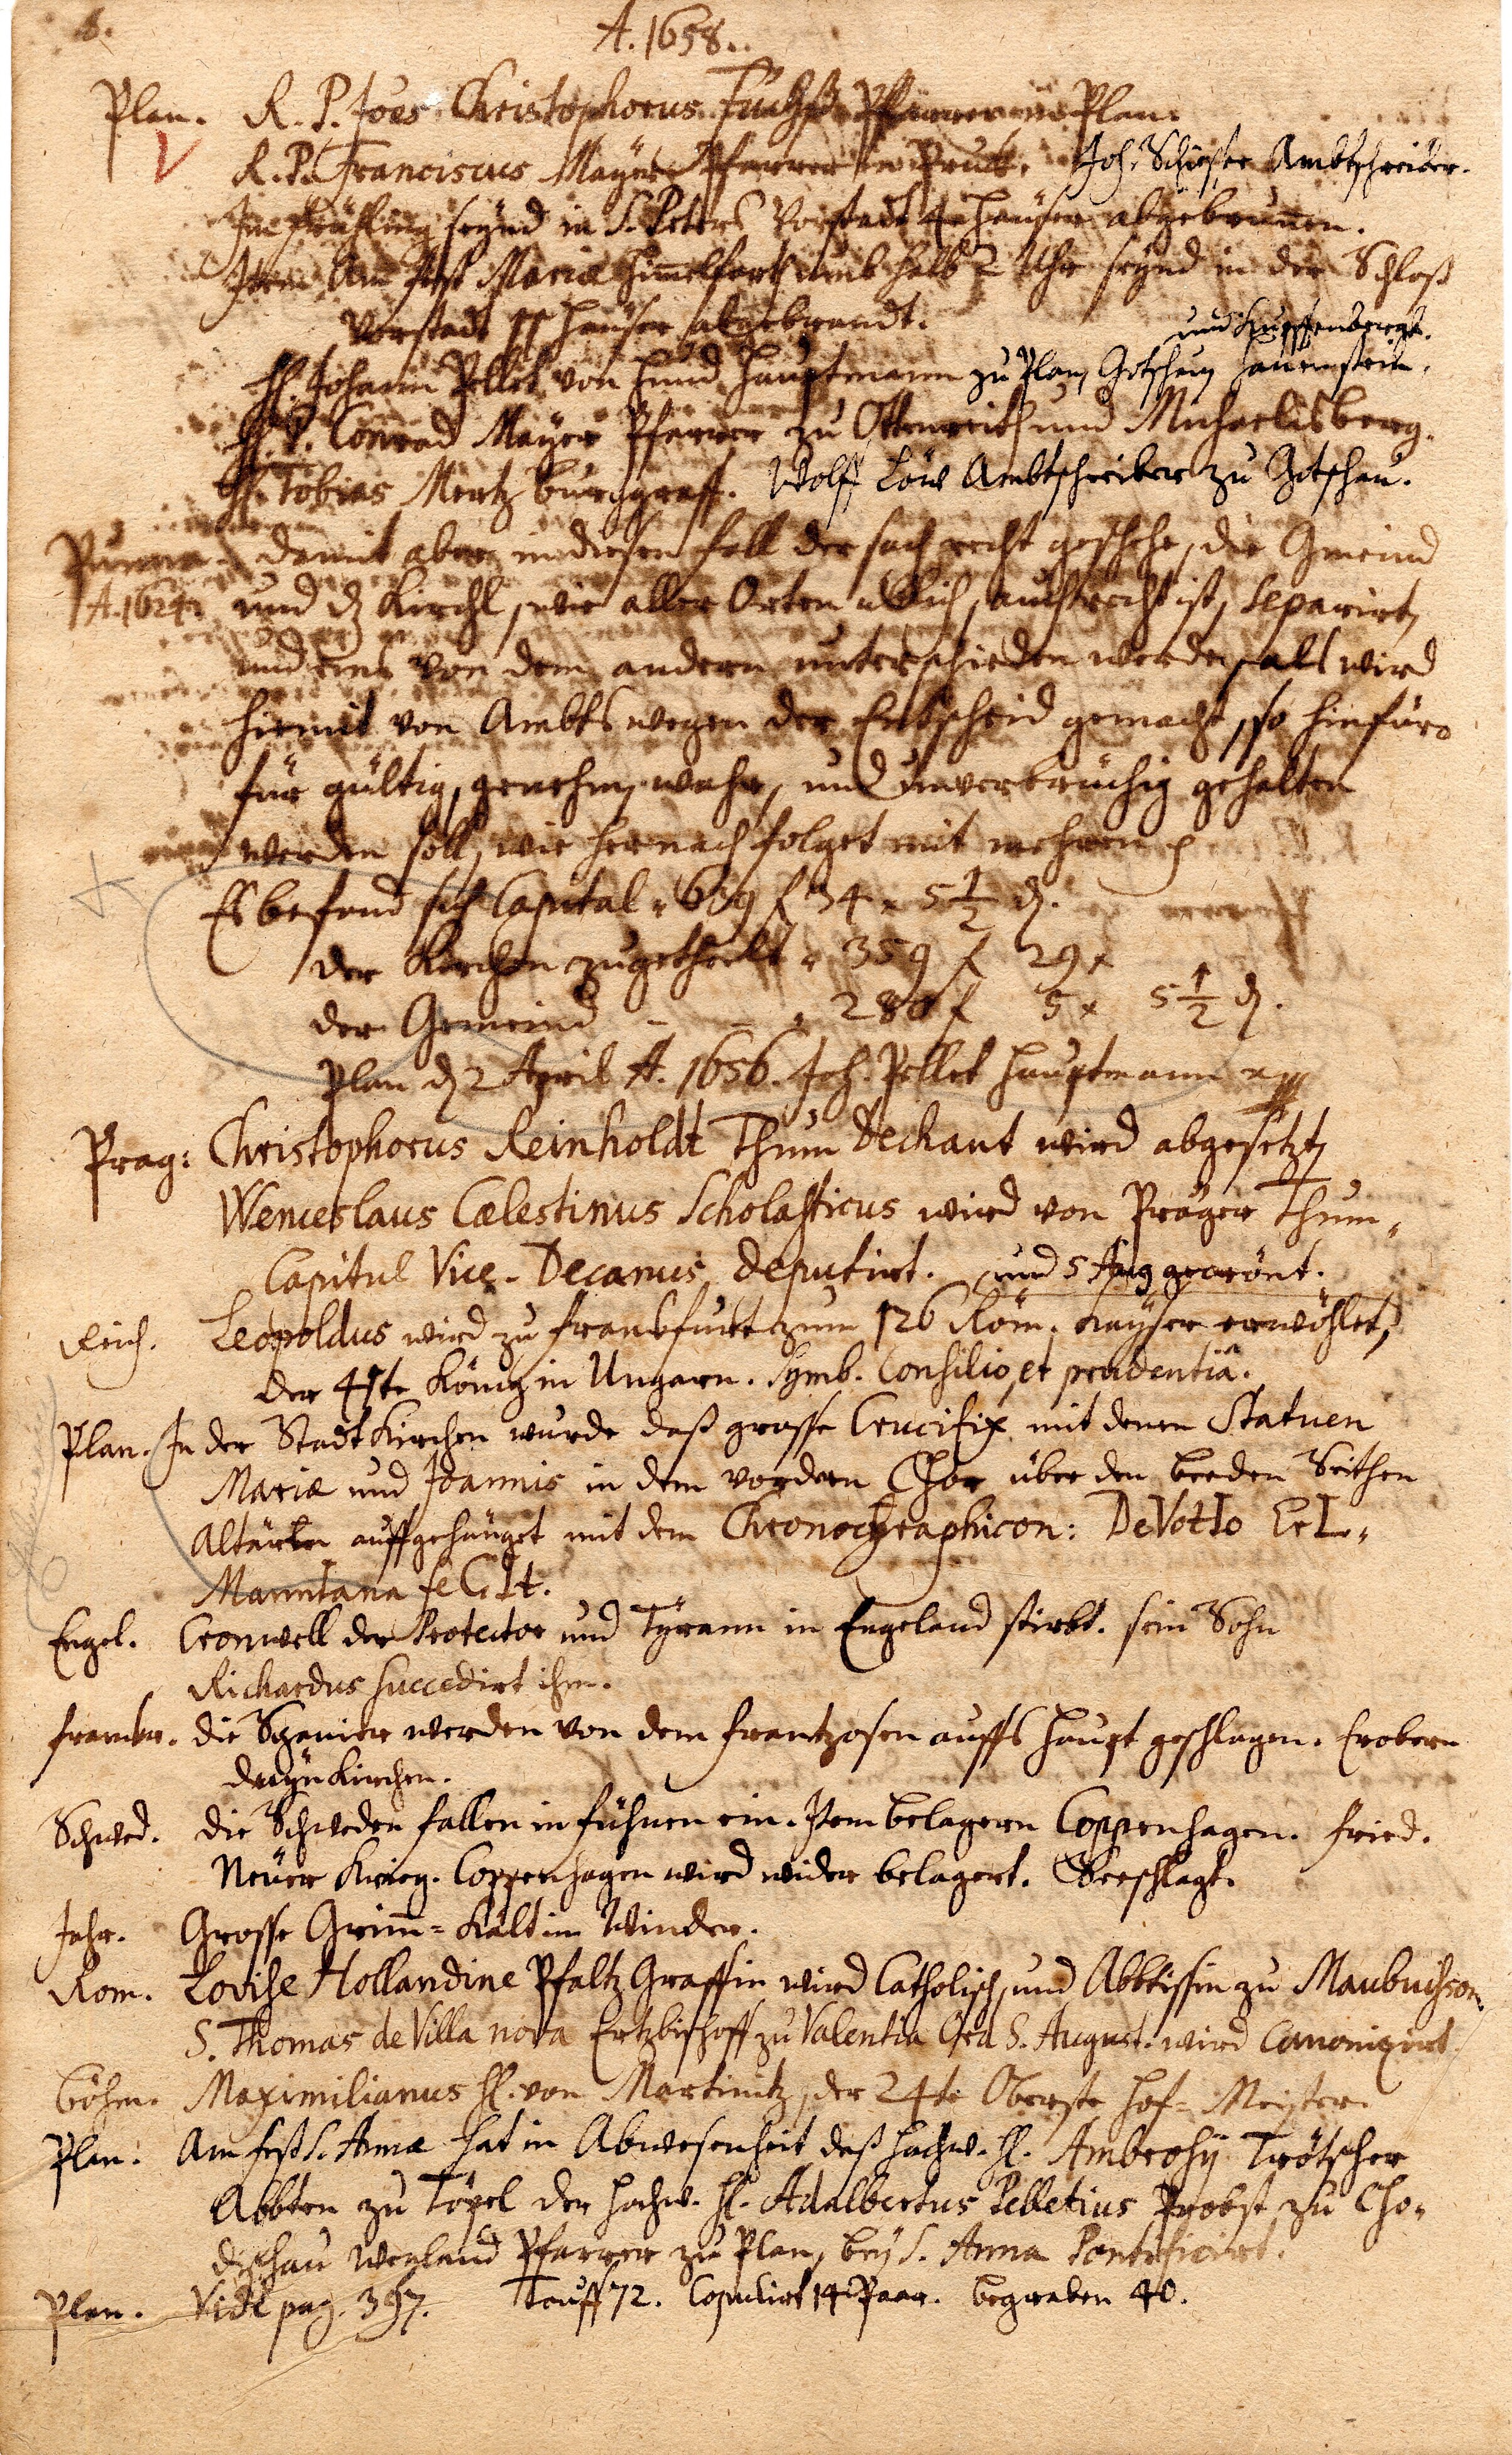 A. 1658.
Plan. R. P. Joes Christophorus Fuchß Pfarrer zu Plan.
R. P. Franciscus Mayer Pfarrer in Bruck. Joh. Ambtschreiber.
Im Frühling seynd in S. Peters Vorstadt 4 Häuser abgebrunnen.
Item Am Fest Mariæ Himmelfarth umb halb 2 Uhr seynd in der Schloß
Vorstadt Häuser abgebrandt.
und
H. Johann Pellet von Hauptmann zu Plan, Gotschau
H. P. Conrad Mayer Pfarrer zu Ottenreith und Michaelisberg.
H. Tobias Mertz burggraff. Wolff Löw Ambtschreiber zu Gotschau.
Damit aber in diesen fall der sach recht geschehe, die Gmeind
A. 1624. und d Kirchl, wie aller Orten üblich, auch recht ist, separirt,
und eins von dem andern unterschieden werde, als wird
hiemit von Ambts wegen der Entscheid gemacht, so hinfüro
für gültig, genehm, wahr, und unverbrüchig gehalten
werden soll, wie hernach folget mit mehren
Es befind sich Capital 639 f 34 x 5 1/2 d.
der Kirchen zugetheilt 359 f 29 x
der Gemeind - - 280 f 5 x 5 1/2 d.
Plan d 2 April A. 1656. Joh. Pellet Hauptmann
Prag: Christophorus Reinholdt Thum Dechant wird abgesetzt,
Wenceslaus Cælestinus Scholasticus wird von Prager Thum-
Capitul Vice-Decanus deputirt. und 5 Aug gecrönt.
Reich. Leopoldus wird zu Franckfurt zum 126 Röm. Kayser erwöhlet,
der 41te König in Ungarn. Symb. Consilio, et prudentiâ.
Plan. In der Stadt Kirchen wurde daß grosse Crucifix mit denen Statuen
Mariæ und Joannis in dem vordern Chor über den beeden Seithen
Altären auffgehänget mit dem Chronographicon: DeVotIo
feCIt.
Engel. Cromwell der Protector und Tyrann in Engeland stirbt. sein Sohn
Richardus succedirt ihm.
Frankr. die Spanier werden von dem Frantzosen auffs Haupt geschlagen. Erobern
Duynkirchen.
Schwed. die Schweden fallen in Fühnen ein. Item belagern Coppenhagen. Fried.
Neuer Krieg. Coppenhagen wird wider belagert. Seeschlagt.
Jahr. Grosse Grim-Kält im Winder.
Rom. Lovise Hollandine Pfaltz Graffin wird Catholisch, und Abbtissin zu Maubuisson.
S. Thomas de Villa nova Ertzbischoff zu Valentia Ord S. August. wird Canonizirt.
Böhm. Maximilianus H. von Martinitz, der 24te Oberste Hof-Meister.
Plan. Am fest S. Annæ hat in Abwesenheit deß Hochw. H. Ambrosij Trötscher
Abbten zu Töpel der Hochw. H. Adalbertus Pelletius Probst zu Cho-
dischau weyland Pfarrer zu Plan, bey S. Anna Pontificirt.
Plan. Vide pag. 397. Tauff 72. Copulirt 14 Paar. begraben 40.